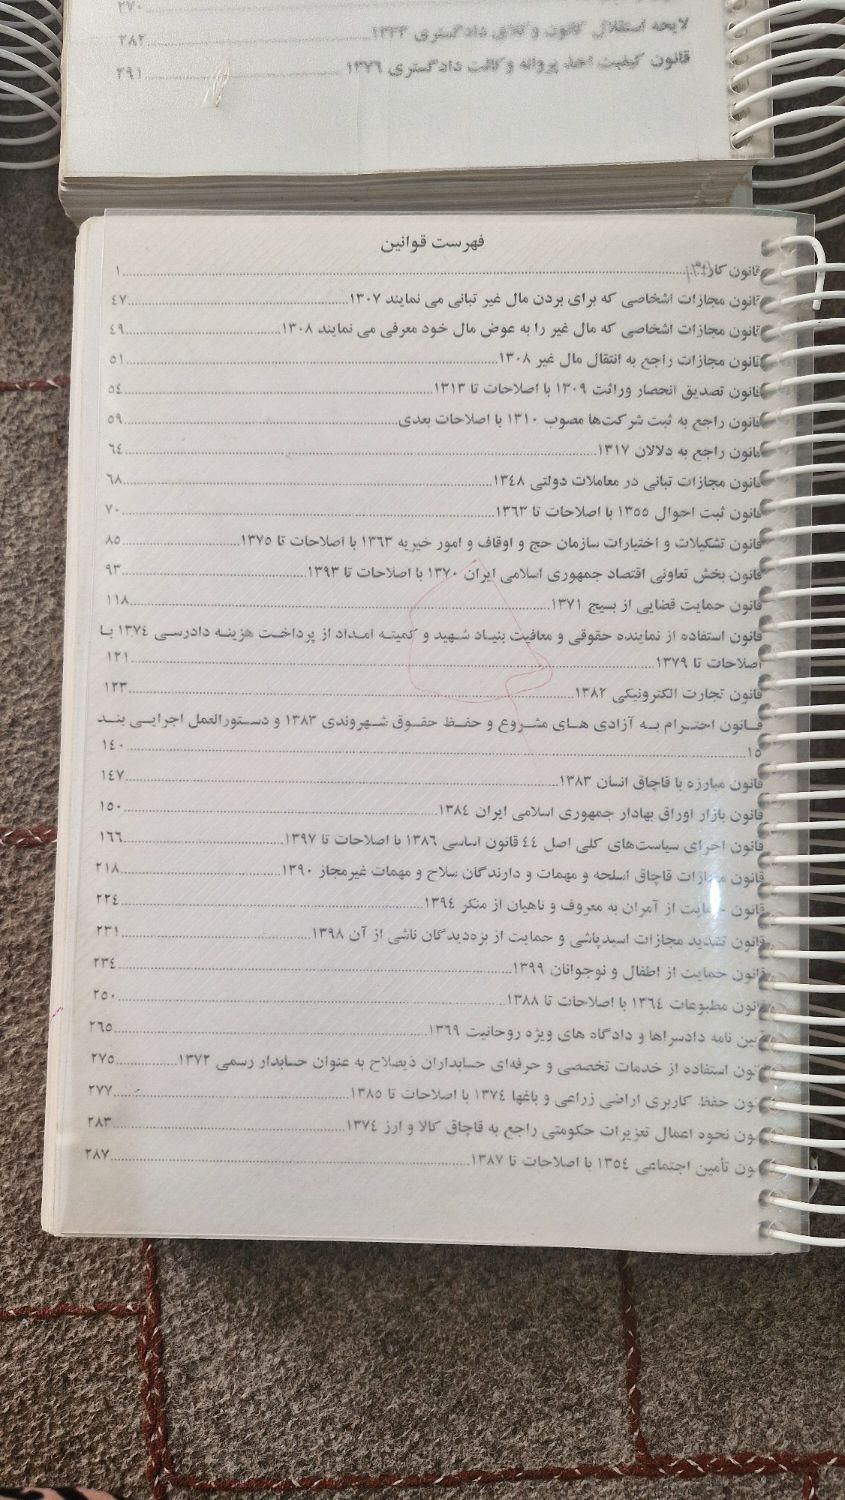 ۲۷۰
لایحه استقلال کانون وکلای دادگستری ۱۳۳۳........۲۸۲
قانون کیفیت اخذ پروانه وکالت دادگستری ۱۳۷۶........۲۹۱
فهرست قوانین
قانون کار........۱
قانون مجازات اشخاصی که برای بردن مال غیر تبانی می نمایند ۱۳۰۷........۴۷
قانون مجازات اشخاصی که مال غیر را به عوض مال خود معرفی می نمایند ۱۳۰۸........۴۹
قانون مجازات راجع به انتقال مال غیر ۱۳۰۸........۵۱
قانون تصدیق انحصار وراثت ۱۳۰۹ با اصلاحات تا ۱۳۱۳........۵۴
قانون راجع به ثبت شرکت‌ها مصوب ۱۳۱۰ با اصلاحات بعدی........۵۹
قانون راجع به دلالان ۱۳۱۷........۶۴
قانون مجازات تبانی در معاملات دولتی ۱۳۴۸........۶۸
قانون ثبت احوال ۱۳۵۵ با اصلاحات تا ۱۳۶۳........۷۰
قانون تشکیلات و اختیارات سازمان حج و اوقاف و امور خیریه ۱۳۶۳ با اصلاحات تا ۱۳۷۵........۸۵
قانون بخش تعاونی اقتصاد جمهوری اسلامی ایران ۱۳۷۰ با اصلاحات تا ۱۳۹۳........۹۳
قانون حمایت قضایی از بسیج ۱۳۷۱........۱۱۸
قانون استفاده از نماینده حقوقی و معافیت بنیاد شهید و کمیته امداد از پرداخت هزینه دادرسی ۱۳۷۴ با
اصلاحات تا ۱۳۷۹........۱۲۱
قانون تجارت الکترونیکی ۱۳۸۲........۱۲۳
قانون احترام به آزادی های مشروع و حفظ حقوق شهروندی ۱۳۸۳ و دستورالعمل اجرایی بند
۱۵........۱۴۰
قانون مبارزه با قاچاق انسان ۱۳۸۳........۱۴۷
قانون بازار اوراق بهادار جمهوری اسلامی ایران ۱۳۸۴........۱۵۰
قانون اجرای سیاست‌های کلی اصل ۴۴ قانون اساسی ۱۳۸۶ با اصلاحات تا ۱۳۹۷........۱۶۶
قانون مجازات قاچاق اسلحه و مهمات و دارندگان سلاح و مهمات غیرمجاز ۱۳۹۰........۲۱۸
قانون حمایت از آمران به معروف و ناهیان از منکر ۱۳۹۴........۲۲۴
قانون تشدید مجازات اسیدپاشی و حمایت از بزه‌دیدگان ناشی از آن ۱۳۹۸........۲۳۱
قانون حمایت از اطفال و نوجوانان ۱۳۹۹........۲۳۴
قانون مطبوعات ۱۳۶۴ با اصلاحات تا ۱۳۸۸........۲۵۰
آیین نامه دادسراها و دادگاه های ویژه روحانیت ۱۳۶۹........۲۶۵
قانون استفاده از خدمات تخصصی و حرفه‌ای حسابداران ذیصلاح به عنوان حسابدار رسمی ۱۳۷۲........۲۷۵
قانون حفظ کاربری اراضی زراعی و باغها ۱۳۷۴ با اصلاحات تا ۱۳۸۵........۲۷۷
قانون نحوه اعمال تعزیرات حکومتی راجع به قاچاق کالا و ارز ۱۳۷۴........۲۸۳
قانون تأمین اجتماعی ۱۳۵۴ با اصلاحات تا ۱۳۸۷........۲۸۷